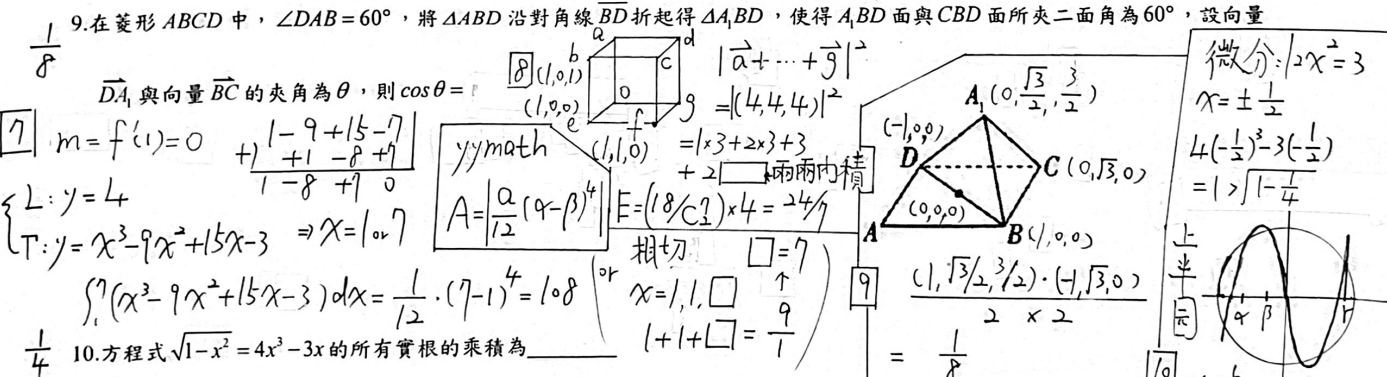 9.在菱形 ABCD 中，∠DAB=60°，將 ΔABD 沿對角線 BD 折起得 ΔA₁BD，使得 A₁BD 面與 CBD 面所夾二面角為60°，設向量
DA₁ 與向量 BC 的夾角為θ，則 cosθ=
1/8
7
m=f'(1)=0
1-9+15-7
+) +1 -8 +7
1 -8 +7 0
{ L:y=4
Γ:y=x³-9x²+15x-3 ⇒x=1 or 7
∫₁⁷(x³-9x²+15x-3)dx=1/12·(7-1)⁴=108
yymath
A=|a/12(α-β)⁴|
8
a
d
b
c
(1,0,1)
(1,0,0)
o
g
e
f
(1,1,0)
|a+⋯+g|²
=|(4,4,4)|²
=1×3+2×3+3
+2□→兩兩內積
E=(18/C⁷₂)×4=24/7
or
相切 □=7
x=1,1,□ ↑
1+1+□=9/1
A₁(0,√3/2,3/2)
(-1,0,0)
D
C(0,√3,0)
(0,0,0)
A
B(1,0,0)
9
(1,√3/2,3/2)·(-1,√3,0)
2×2
= 1/8
微分:12x²=3
x=±1/2
4(-1/2)³-3(-1/2)
=1>√1-1/4
上半圓
α β r
10
1/4
10.方程式√1-x²=4x³-3x的所有實根的乘積為